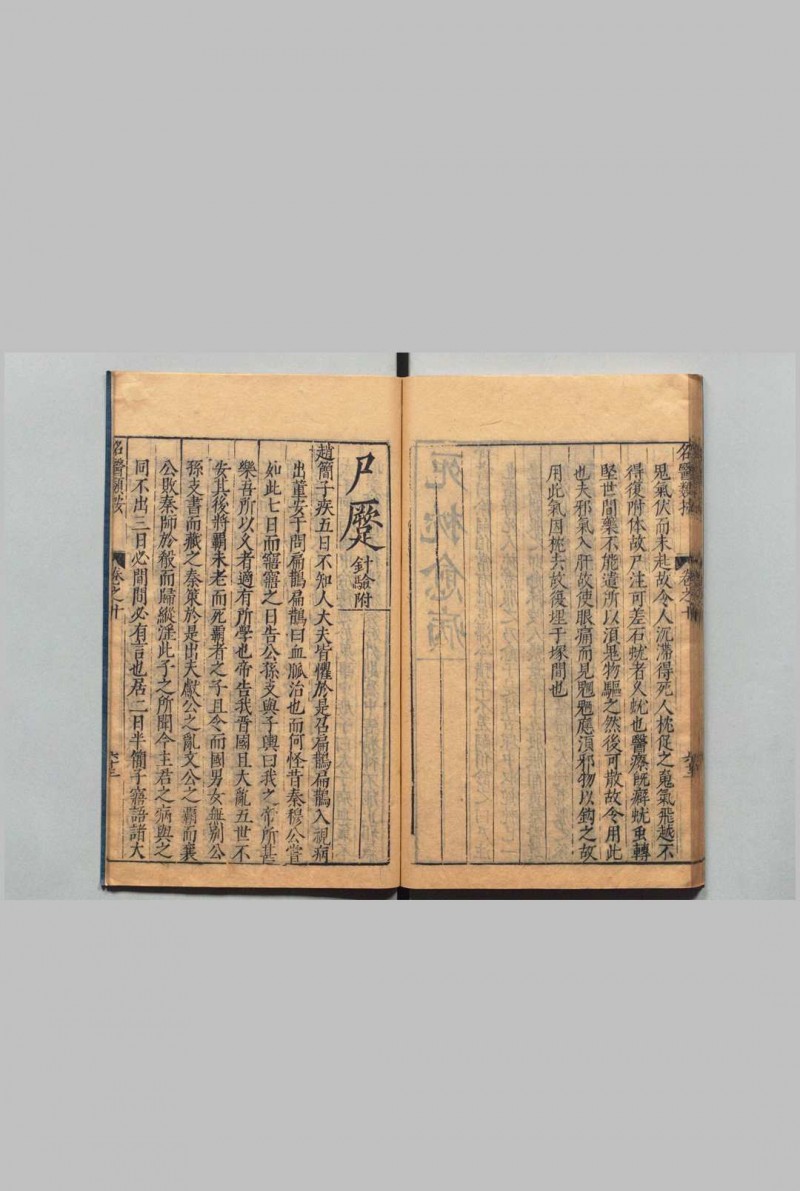 名醫類按
卷之十
鬼氣伏而未起故令人沉滯得死人枕促之䰟氣飛越不
得復附体故尸注可差石蚘者又蚘也醫療既癖蚘虫轉
堅世間藥不能遣所以湏鬼物驅之然後可散故令用此
也夫邪氣入肝故使眼痛而見魍魎應湏邪物以鈎之故
用此氣因枕去故復埋于塚間也
尸蹷 針驗附
趙簡子疾五日不知人大夫皆懼於是召扁鵲扁鵲入視病
出董安于問扁鵲扁鵲曰血脈治也而何怪昔秦穆公嘗
如此七日而寤寤之日告公孫支與子輿曰我之帝所甚
樂吾所以乆者適有所學也帝告我晉國且大亂五世不
安其後將覇未老而死覇者之子且令而國男女無別公
孫支書而藏之秦策於是出夫獻公之亂文公之覇而襄
公敗秦師於殽而歸縱淫此子之所聞今主君之病與之
同不出三日必間間必有言也居二日半簡子寤語諸大
名醫類按
卷之十
六十三